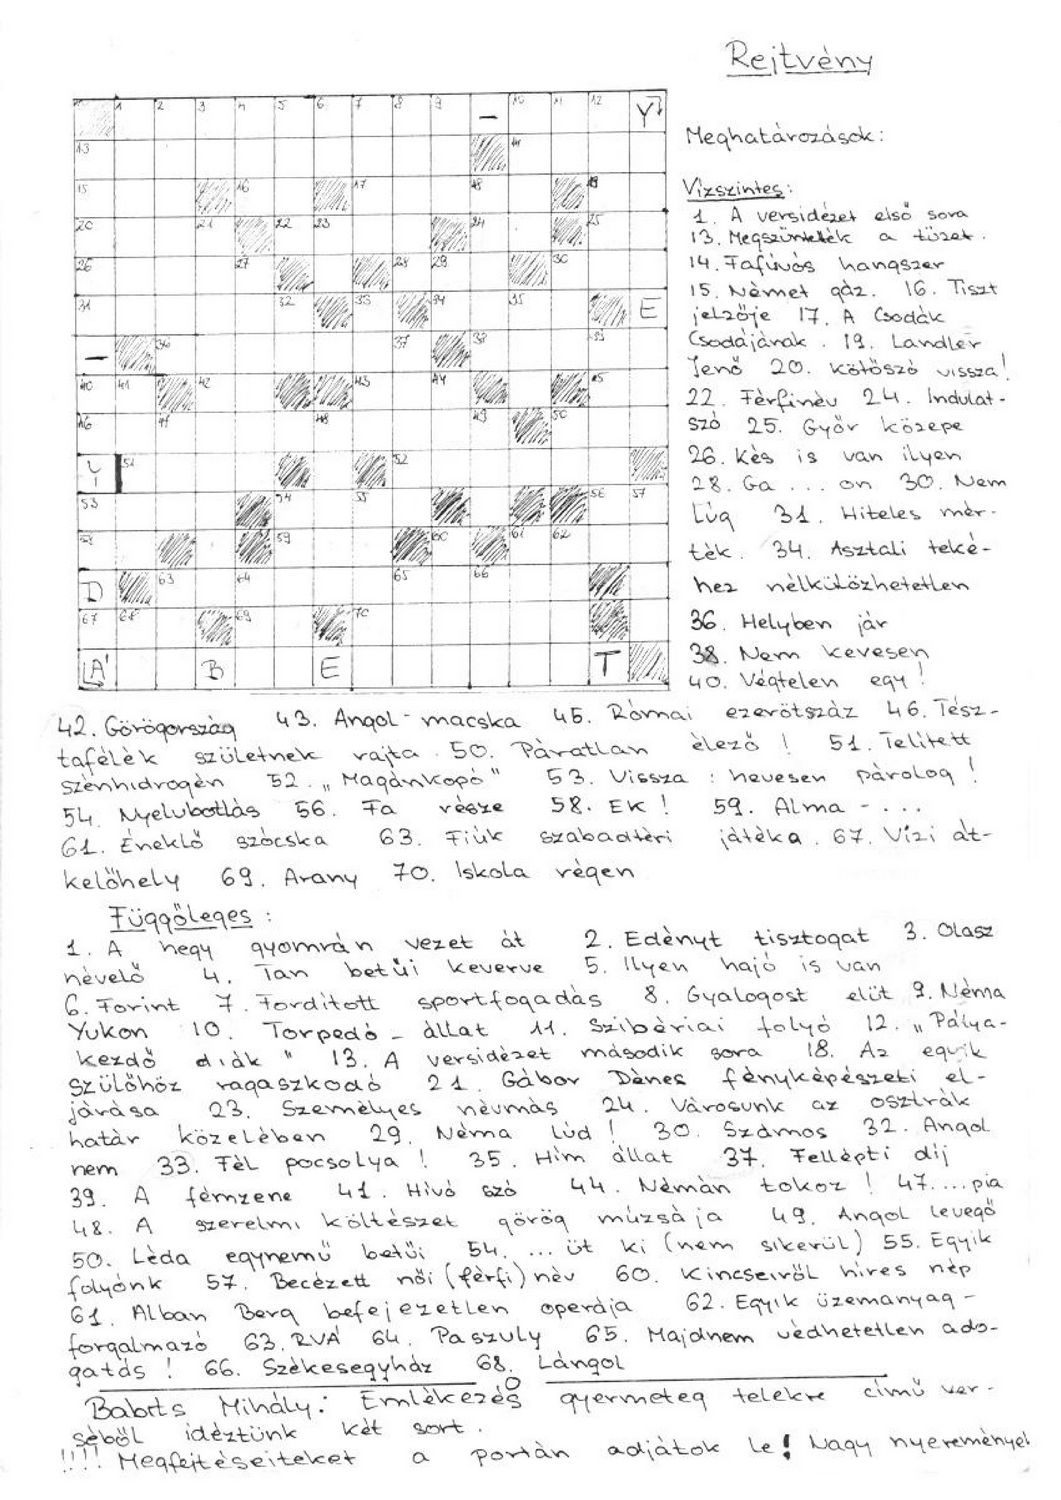 Rejtvény
1 2 3 4 5 6 7 8 9 - 10 11 12 Y
13 14
15 16 17 18 19
20 21 22 23 24 25
26 27 28 29 30
31 32 33 34 35 E
- 36 37 38 39
40 41 42 43 44 45
46 47 48 49 50
51 52
53 54 55 56 57
58 59 60 61 62
D 63 64 65 66
67 68 69 70
Á B E T
Meghatározások:
Vízszintes:
1. A versidézet első sora
13. Megszüntették a tüzet.
14. Fafúvós hangszer
15. Német gáz. 16. Tiszt
jelzője 17. A Csodák
Csodájának. 19. Landler
Jenő 20. kötőszó vissza!
22. Férfinév 24. Indulat-
szó 25. Győr közepe
26. Kés is van ilyen
28. Ga ... on 30. Nem
lúg 31. Hiteles mér-
ték. 34. Asztali teké-
hez nélkülözhetetlen
36. Helyben jár
38. Nem kevesen
40. Végtelen egy!
42. Görögország 43. Angol-macska 45. Római ezerötszáz 46. Tész-
tafélék születnek rajta. 50. Páratlan élező! 51. Telített
szénhidrogén 52. „Magánkopó" 53. Vissza: hevesen párolog!
54. Nyelvbotlás 56. Fa része 58. Ek! 59. Alma - ...
61. Éneklő szócska 63. Fiúk szabadtéri játéka. 67. Vízi át-
kelőhely 69. Arany 70. Iskola régen
Függőleges:
1. A hegy gyomrán vezet át 2. Edényt tisztogat 3. Olasz
névelő 4. Tan betűi keverve 5. Ilyen hajó is van
6. Forint 7. Fordított sportfogadás 8. Gyalogost elüt 9. Néma
Yukon 10. Torpedó-állat 11. Szibériai folyó 12. „Pálya-
kezdő diák" 13. A versidézet második sora 18. Az egyik
szülőhöz ragaszkodó 21. Gábor Dénes fényképészeti el-
járása 23. Személyes névmás 24. Városunk az osztrák
határ közelében 29. Néma lúd! 30. Számos 32. Angol
nem 33. Fél pocsolya! 35. Hím állat 37. Fellépti díj
39. A fémzene 41. Hívó szó 44. Némán tokoz! 47. ...pia
48. A szerelmi költészet görög múzsája 49. Angol levegő
50. Léda egynemű betűi 54. ... üt ki (nem sikerül) 55. Egyik
folyónk 57. Becézett női (férfi) név 60. Kincseiről híres nép
61. Alban Berg befejezetlen operája 62. Egyik üzemanyag-
forgalmazó 63. RVÁ 64. Paszuly 65. Majdnem védhetetlen ado-
gatás! 66. Székesegyház 68. Lángol
Babits Mihály: Emlékezés gyermeteg telekre című ver-
séből idéztünk két sort.
!!!! Megfejtéseiteket a portán adjátok le! Nagy nyeremények